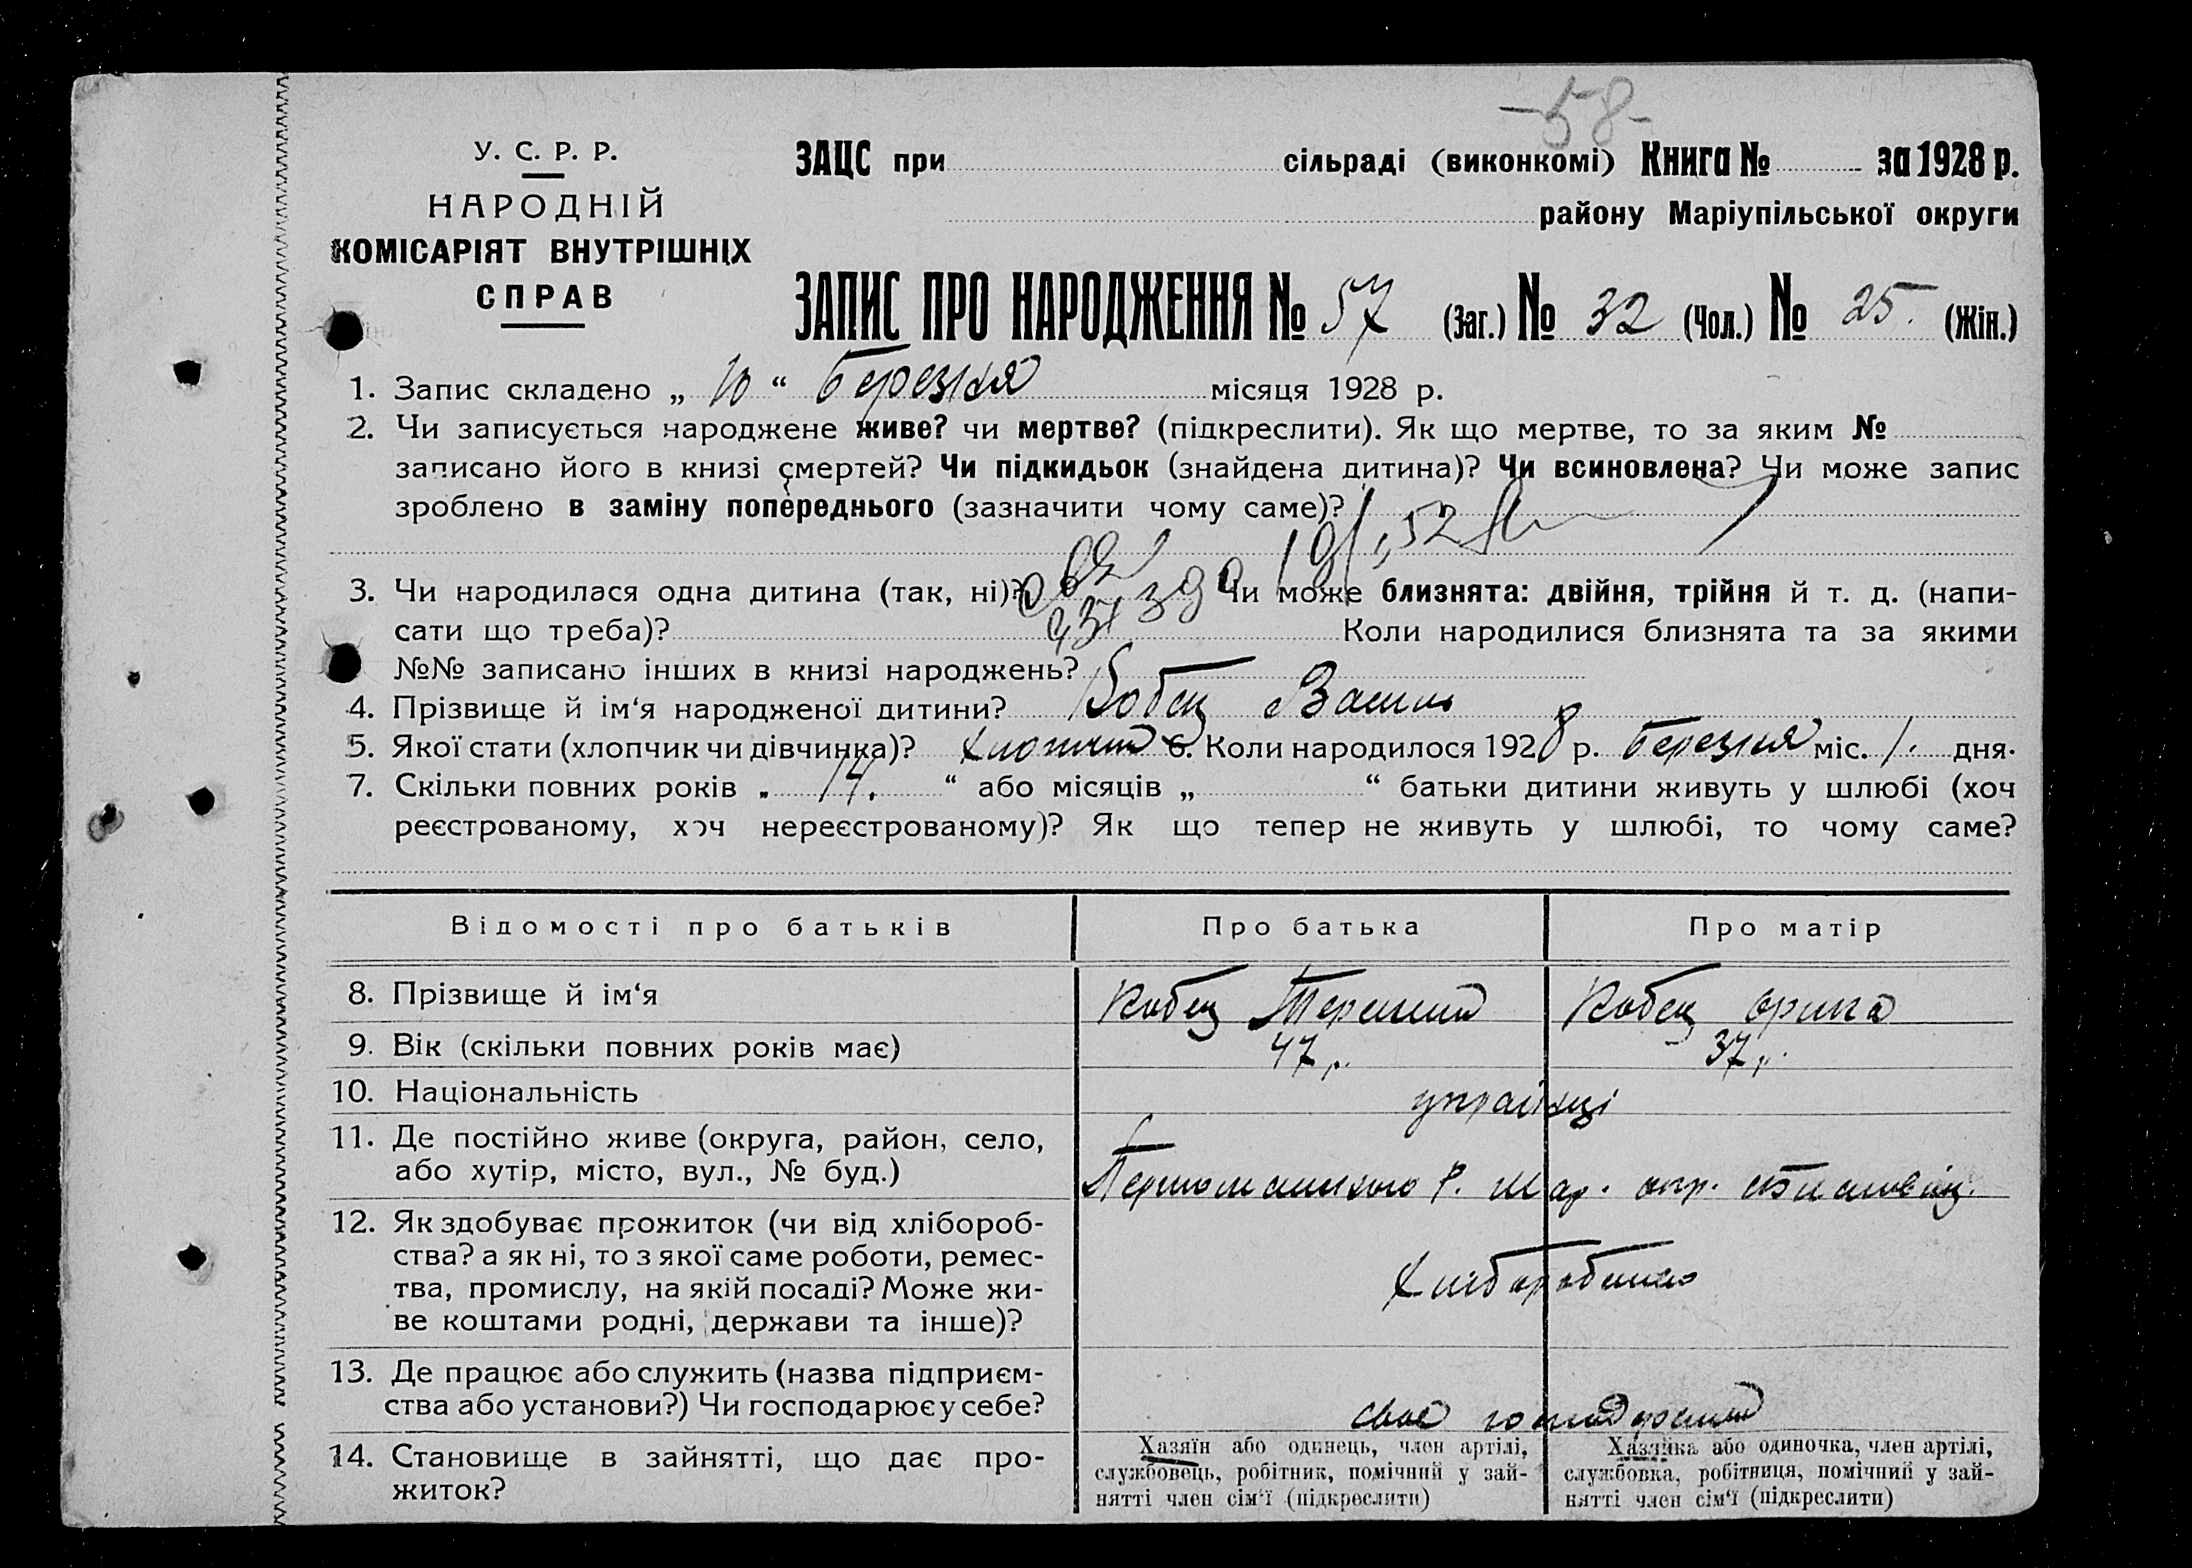 -58-
У. С. Р. Р.
НАРОДНІЙ
КОМІСАРІЯТ ВНУТРІШНІХ
СПРАВ
ЗАЦС при сільраді (виконкомі) Книга № за 1928 р.
району Маріупільської округи
ЗАПИС ПРО НАРОДЖЕННЯ № 57 (Заг.) № 32 (Чол.) № 25. (Жін.)
1. Запис складено „ 10 “ Березня місяця 1928 р.
2. Чи записується народжене живе? чи мертве? (підкреслити). Як що мертве, то за яким №
записано його в книзі смертей? Чи підкидьок (знайдена дитина)? Чи всиновлена? Чи може запис
зроблено в заміну попереднього (зазначити чому саме)?
3. Чи народилася одна дитина (так, ні)? Чи може близнята: двійня, трійня й т. д. (напи-
сати що треба)? Коли народилися близнята та за якими
№№ записано інших в книзі народжень?
4. Прізвище й ім‘я народженої дитини? Кобец Василь
5. Якої стати (хлопчик чи дівчинка)? Хлопчик 6. Коли народилося 1928 р. Березня міс. 1. дня.
7. Скільки повних років „ 14. “ або місяців „ “ батьки дитини живуть у шлюбі (хоч
реєстрованому, хоч нереєстрованому)? Як що тепер не живуть у шлюбі, то чому саме?
Відомості про батьків Про батька Про матір
8. Прізвище й ім‘я Кобец Кобец Орина
9. Вік (скільки повних років має) 47 р. 37 р.
10. Національність українці
11. Де постійно живе (округа, район, село,
або хутір, місто, вул., № буд.) Р. Мар. окр.
12. Як здобуває прожиток (чи від хлібороб-
ства? а як ні, то з якої саме роботи, ремес-
тва, промислу, на якій посаді? Може жи-
ве коштами родні, держави та інше)? Хліборобство
13. Де працює або служить (назва підприєм-
ства або установи?) Чи господарює у себе? своє
14. Становище в зайнятті, що дає про-
житок?
Хазяїн або одинець, член артілі,
службовець, робітник, помічний у зай-
нятті член сім‘ї (підкреслити)
Хазяйка або одиночка, член артілі,
службовка, робітниця, помічний у зай-
нятті член сім‘ї (підкреслити)